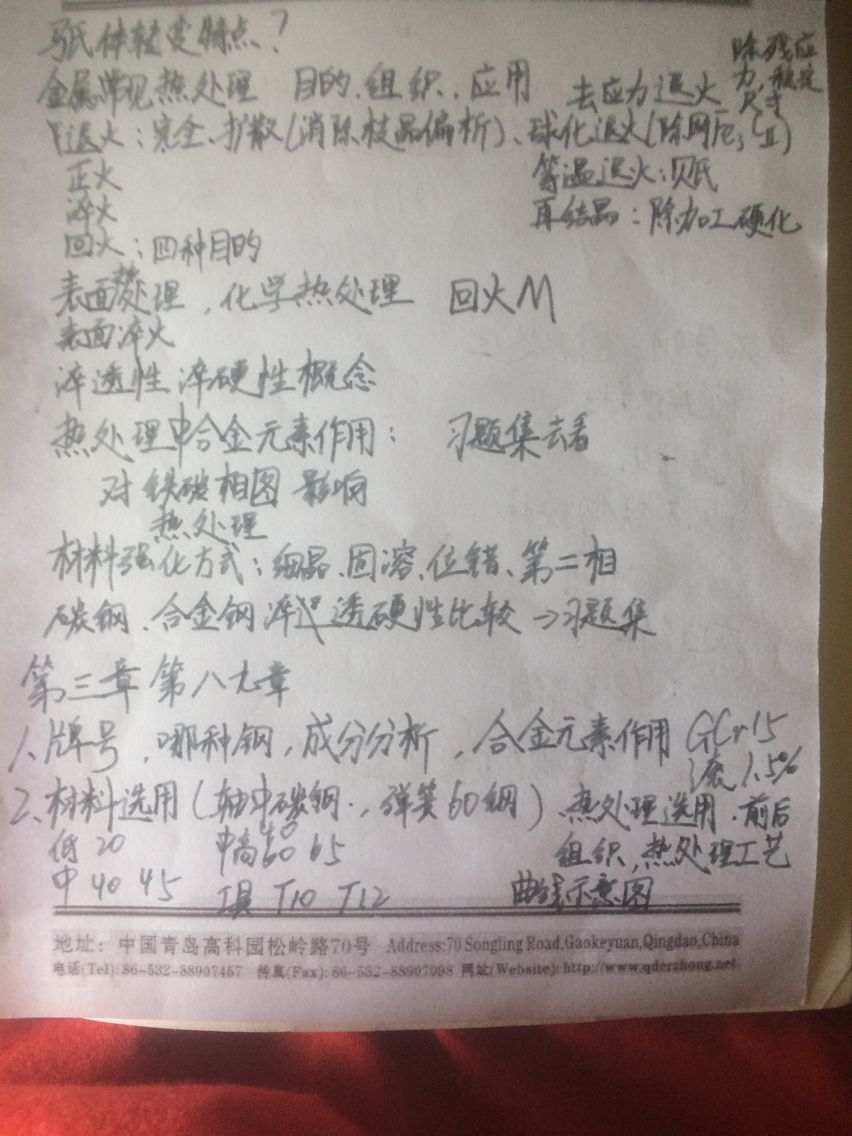 马氏体转变特点？
金属常见热处理 目的、组织、应用 去应力退火 除残应力，稳定尺寸
退火：完全、扩散(消除枝晶偏析)、球化退火(除网Fe3CⅡ)
正火 等温退火：贝氏
淬火 再结晶：除加工硬化
回火：四种目的
表面热处理，化学热处理 回火M
表面淬火
淬透性 淬硬性概念
热处理中合金元素作用： 习题集去看
对铁碳相图影响
热处理
材料强化方式：细晶、固溶、位错、第二相
碳钢、合金钢淬透硬性比较→习题集
第三章 第八九章
1、牌号，哪种钢，成分分析，合金元素作用 GCr15
滚1.5%
2、材料选用(轴中碳钢，弹簧60钢)、热处理选用、前后
低20 中高60 65 组织，热处理工艺
中40 45 工具 T10 T12 曲线示意图
地址：中国青岛高科园松岭路70号 Address:70 Songling Road,Gaokeyuan,Qingdao,China
电话(Tel):86-532-88907457 传真(Fax):86-532-88907098 网址(Website):http://www.qderzhong.net